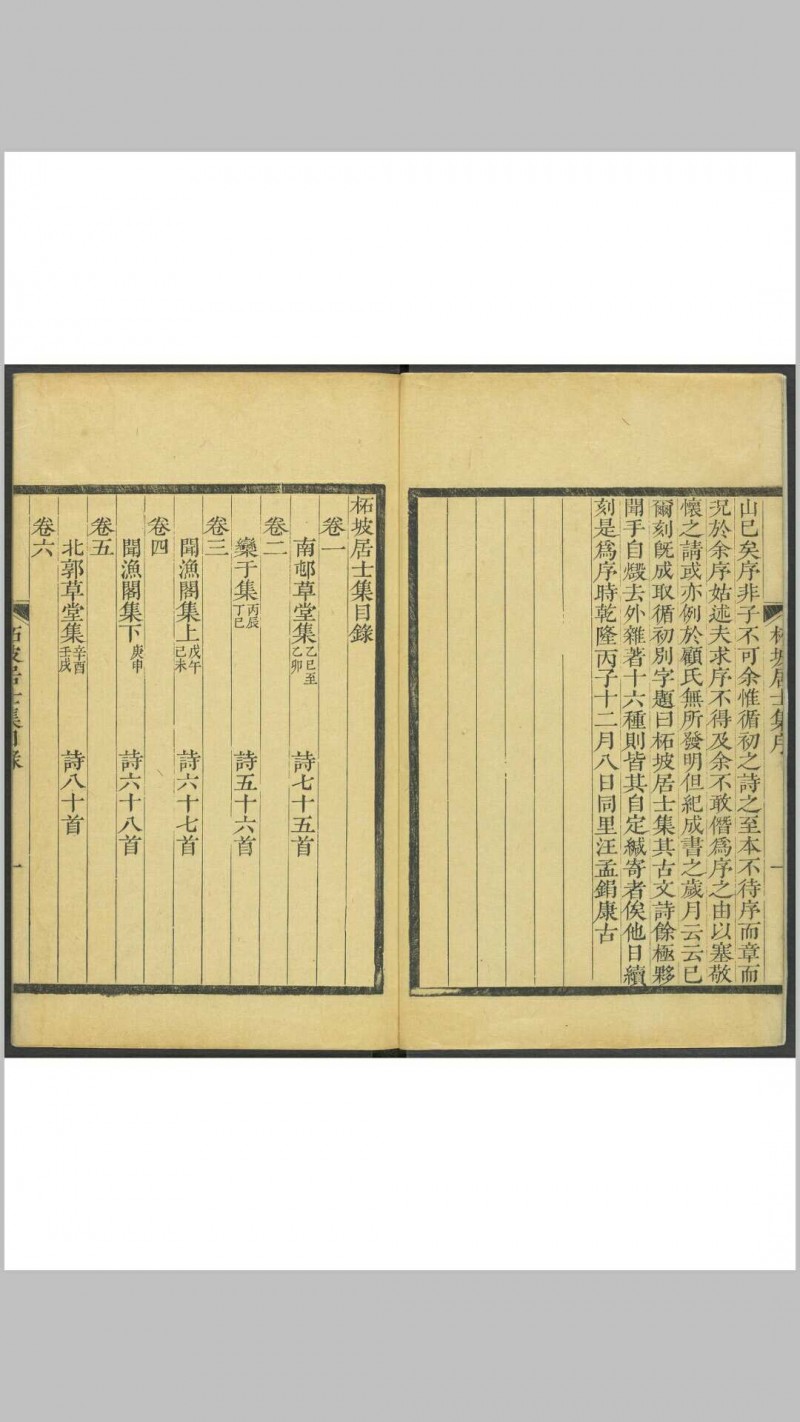 山已矣序非子不可余惟循初之詩之至本不待序而章而
况於余序姑述夫求序不得及余不敢僭爲序之由以塞敬
懷之請或亦例於顧氏無所發明但紀成書之歲月云云已
爾刻旣成取循初別字題曰柘坡居士集其古文詩餘極夥
聞手自燬去外雜著十六種則皆其自定緘寄者俟他日續
刻是爲序時乾隆丙子十二月八日同里汪孟鋗康古
柘坡居士集序
一
柘坡居士集目錄
卷一
南邨草堂集乙巳至乙卯 詩七十五首
卷二
欒于集丙辰丁巳 詩五十六首
卷三
聞漁閣集上戊午己未 詩六十七首
卷四
聞漁閣集下庚申 詩六十八首
卷五
北郭草堂集辛酉壬戌 詩八十首
卷六
柘坡居士集目錄
一